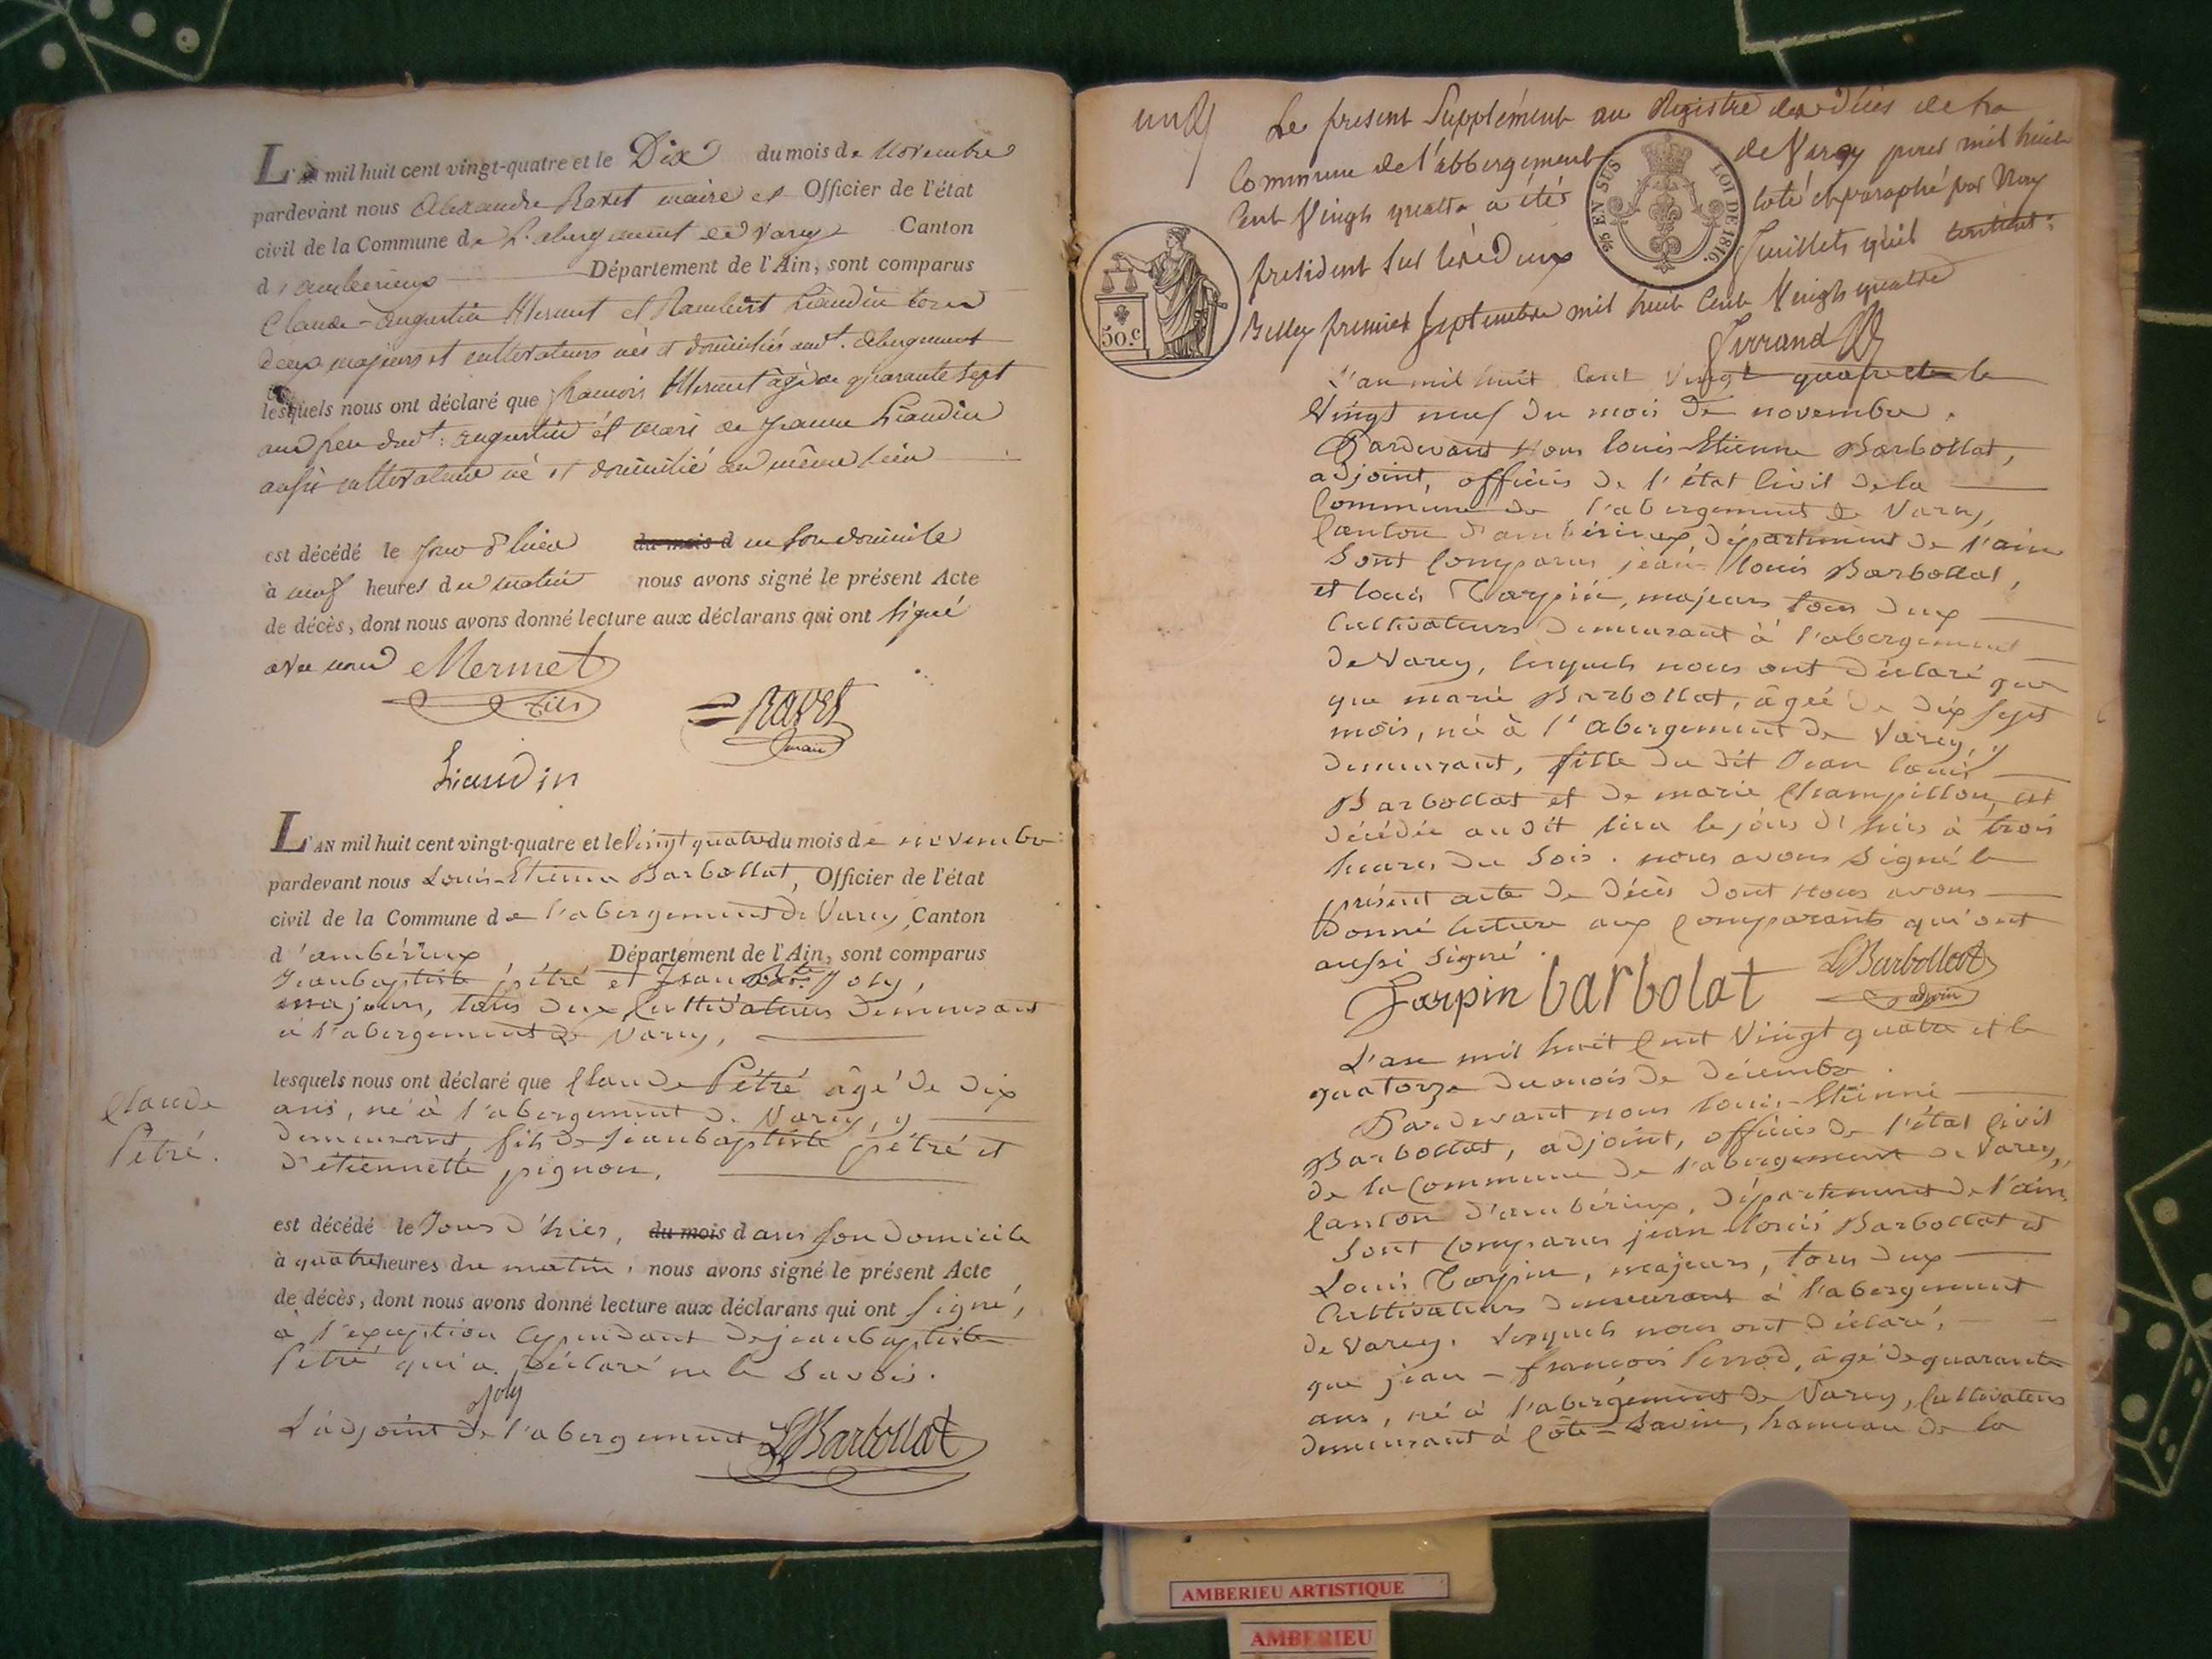 L'AN mil huit cent vingt-quatre et le Dix du mois de Novembre
pardevant nous Alexandre Ravet maire et Officier de l'état
civil de la Commune de L'abergement de Varey Canton
d'ambérieux Département de l'Ain, sont comparus
Claude-Augustin Mermet et Rambert Liaudin tous
deux majeurs et cultivateurs nés et domiciliés aud. abergement
lesquels nous ont déclaré que francois Mermet âgé de quarante sept
ans feu augustin et mari de Jeanne Liaudin
aussi cultivateur né et domicilié au même lieu
est décédé le jour d'hier du mois d en son domicile
à neuf heures du matin nous avons signé le présent Acte
de décès, dont nous avons donné lecture aux déclarans qui ont signé
avec nous Mermet
fils
Ravet
maire
Liaudin
L'AN mil huit cent vingt-quatre et le Vingt quatre du mois de novembre
pardevant nous Louis-Etienne Barbollat, Officier de l'état
civil de la Commune de l'abergement de Varey, Canton
d'ambérieux, Département de l'Ain, sont comparus
Jeanbaptiste pétré et Joly,
majeurs, tous deux Cultivateurs demeurant
à l'abergement de Varey,
lesquels nous ont déclaré que Claude Pétré âgé de dix
ans, né à l'abergement de Varey, y
demeurant, fils de Jeanbaptiste pétré et
d'etiennette pignon.
Claude
Pétré.
est décédé le Jour d'hier, du mois dans son Domicile
à quatre heures du matin, nous avons signé le présent Acte
de décès, dont nous avons donné lecture aux déclarans qui ont signé,
à l'exception cependant de jeanbaptiste
Pétré qui a déclaré ne le savoir.
joly
L'adjoint de l'abergement LBarbollat
Le present Supplément au Registre des décès de la
Commune de l'abbergement de Varey pour mil huit
Cent Vingt quatre a étés coté et paraphé par Nous
président sur les Deux feuillets qu'il contient.
Belley premier Septembre mil huit Cent Vingt quatre
Ferrand
5/6 EN SUS LOI DE 1816.
50.c
L'an mil huit Cent Vingt quatre et le
Vingt neuf du mois de novembre.
Pardevant Nous louis-Etienne Barbollat,
adjoint, officier de l'état Civil de la
Commune de l'abergement de Varey,
Canton d'ambérieux, département de l'ain
sont Comparus jean-louis Barbollat,
et louis Tarpin, majeurs tous deux
Cultivateurs demeurant à l'abergement
de Varey, lesquels nous ont déclaré que
que marie Barbollat, âgée de dix sept
mois, née à l'abergement de Varey, y
demeurant, fille du dit Jean louis
Barbollat et de marie Champillon, est
décédée au dit lieu le jour d'hier à trois
heures du soir. nous avons signé le
présent acte de décès dont nous avons
Donné lecture aux Comparants qui ont
aussi signé.
Tarpin barbolat LBarbollat
adjoin
L'an mil huit Cent Vingt quatre et le
quatorze du mois de décembre.
Pardevant nous louis-Etienne
Barbollat, adjoint, officier de l'état Civil
de la Commune de l'abergement de Varey,
Canton d'ambérieux, département de l'ain,
sont Comparus jean louis Barbollat et
Louis Tarpin, majeurs, tous deux
Cultivateurs demeurant à l'abergement
de Varey. Lesquels nous ont déclaré,
que jean-françois Perrod, âgé de quarante
ans, né à l'abergement de Varey, Cultivateur
demeurant à Côte-Savin, hameau de la
AMBERIEU ARTISTIQUE
AMBERIEU